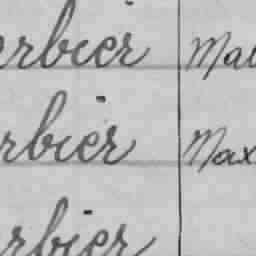 erbier Mal
rbier Max
rbier